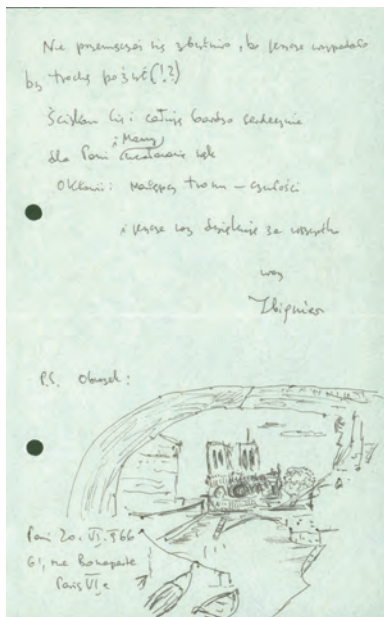 Nie przemęczaj się zbytnio, bo jeszcze wypadało
by trochę pożyć (!?)
Ściskam Cię i całuję bardzo serdecznie
dla Pani i Mamy ucałowanie rąk
Oklanii: trosn – czułości
i jeszcze raz dziękuję za wszystko
wasz
Zbigniew
P.S. Obrazek:
20. VI. 966
61, rue Bonaparte
Paris VIe